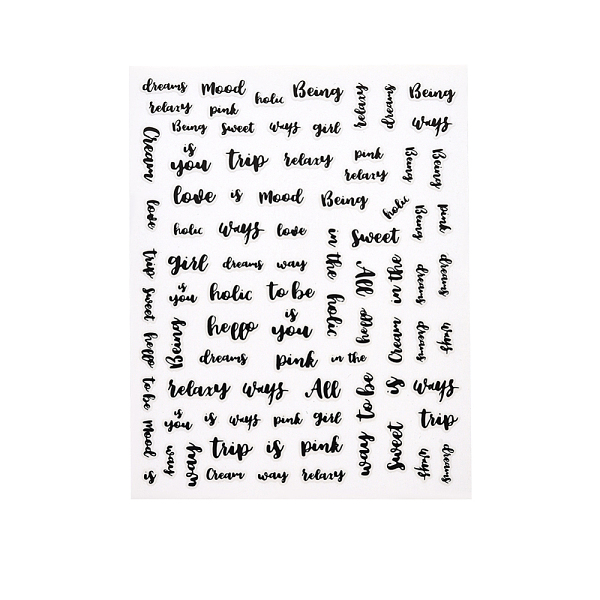 dreams Mood holic Being relaxy dreams Being
relaxy pink
Being sweet ways girl ways
Cream is you trip relaxy pink relaxy Being Being
love love is Mood Being holic Being pink
holic ways love in the holic sweet
trip girl dreams way All hello Cream in the dreams dreams
sweet is you holic to be
hello Being hello is you dreams ways
dreams pink in the
to be relaxy ways All way to be is ways
Mood is is you is ways pink girl sweet trip
way way trip is pink ways dreams
Cream way relaxy